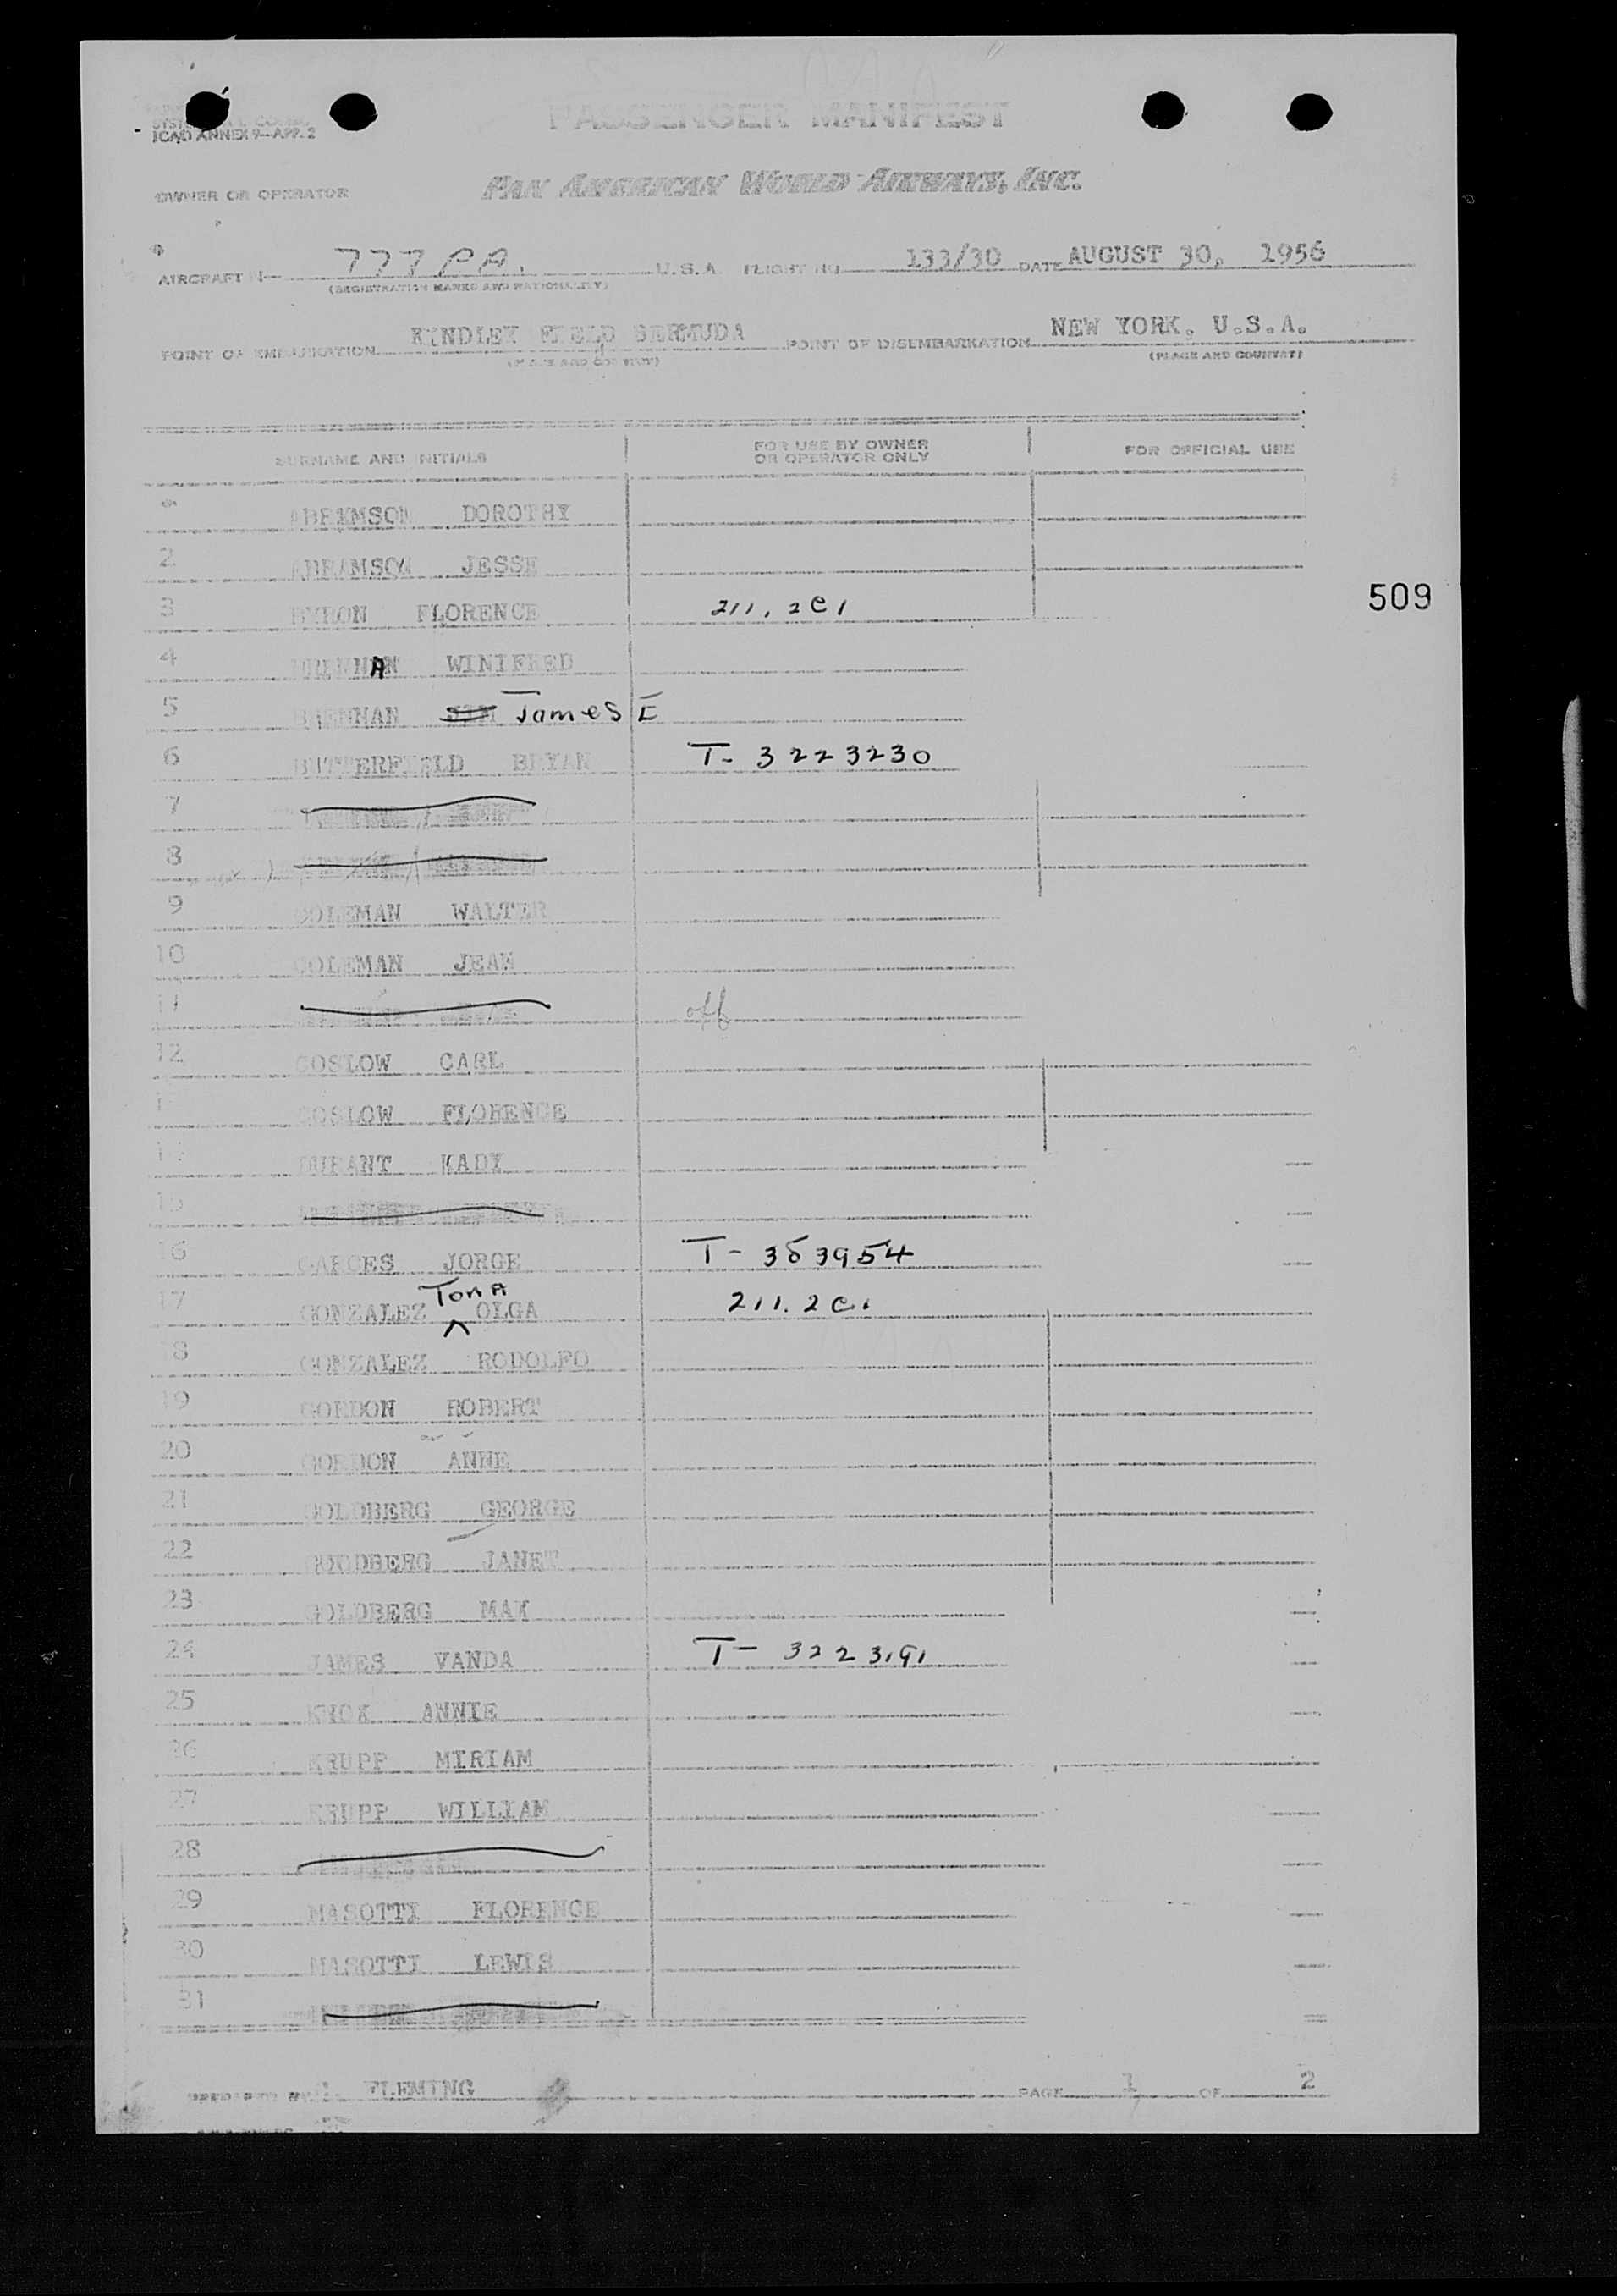 PASSENGER MANIFEST
ICAO ANNEX 9—APP. 2
OWNER OR OPERATOR PAN AMERICAN WORLD AIRWAYS, INC.
AIRCRAFT N— 777 PA. U.S.A. FLIGHT NO. 133/30 DATE AUGUST 30, 1956
(REGISTRATION MARKS AND NATIONALITY)
POINT OF EMBARKATION KINDLEY FIELD BERMUDA POINT OF DISEMBARKATION NEW YORK, U.S.A.
(PLACE AND COUNTRY) (PLACE AND COUNTRY)
SURNAME AND INITIALS FOR USE BY OWNER OR OPERATOR ONLY FOR OFFICIAL USE
ABRAMSON DOROTHY
2 ABRAMSON JESSE
509
3 BYRON FLORENCE 211.2C1
4 BRENNAN WINIFRED
5 BRENNAN James E
6 BUTTERFIELD BRYAN T- 3223230
7
8
9 COLEMAN WALTER
10 COLEMAN JEAN
11 off
12 COSLOW CARL
COSLOW FLORENCE
DURANT KADY
15
16 GARCES JORGE T- 383954
17 GONZALEZ TONA OLGA 211.2C1
18 GONZALEZ RODOLFO
19 GORDON ROBERT
20 GORDON ANNE
21 GOLDBERG GEORGE
22 GOODBERG JANET
23 GOLDBERG MAX
24 JAMES VANDA T- 3223191
25 KNOX ANNIE
26 KRUPP MIRIAM
27 KRUPP WILLIAM
28
29 MASOTTI FLORENCE
30 MASOTTI LEWIS
31
PREPARED BY FLEMING PAGE 1 OF 2